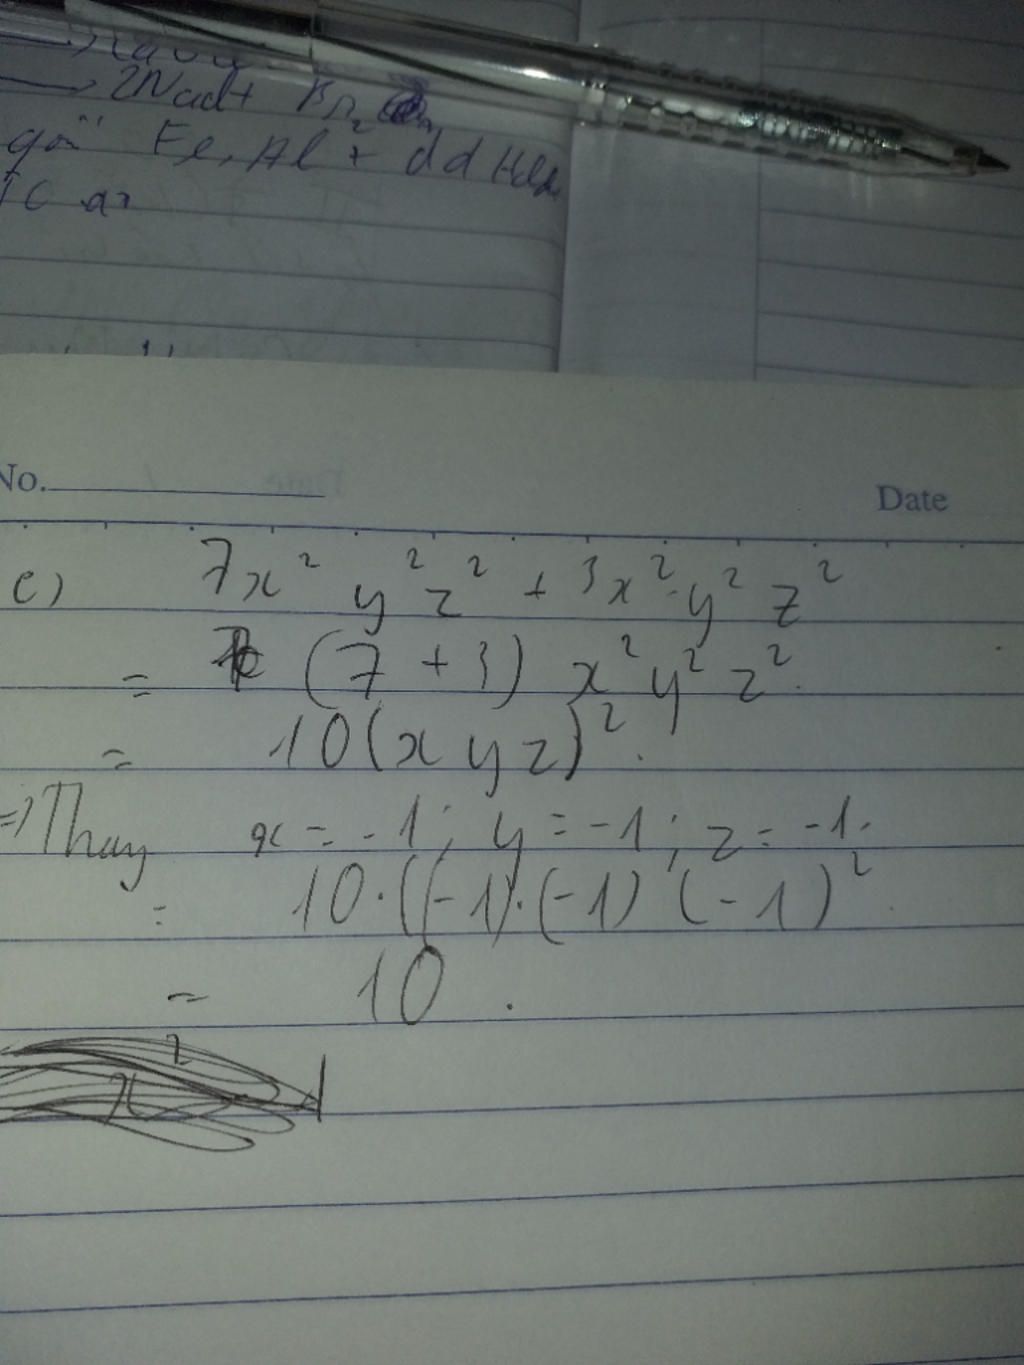 → 2NaCl + Br₂
Fe, Al + dd HCl
No.
Date
c) 7x² y² z² + 3x² y² z²
= (7 + 3) x² y² z².
= 10(x y z)².
=> Thay x = -1; y = -1; z = -1.
= 10.((-1).(-1) (-1)²
= 10.